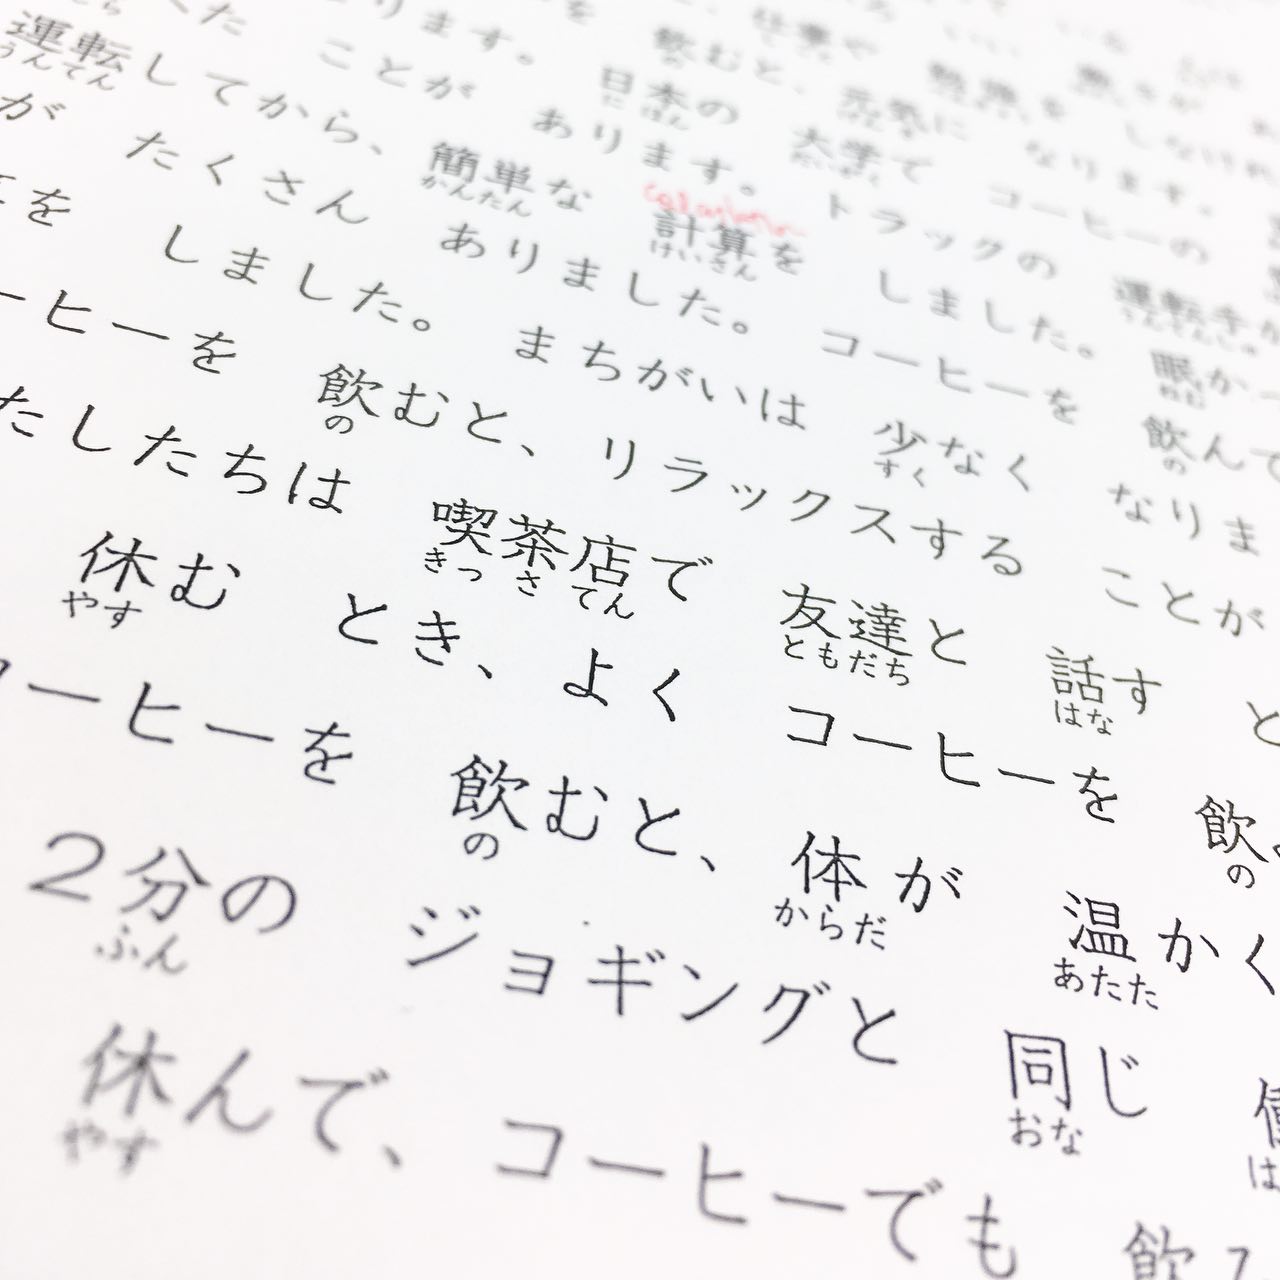 仕事や 勉強を しなけれ
を 飲むと、 元気に なります。
ります。 日本の 大学で コーヒーの
に ほん
た ことが あります。 トラックの 運転手が
うんてんしゅ
運転してから、 簡単な 計算を しました。 眠か
うんてん かんたん けいさん ねむ
が たくさん ありました。 コーヒーを 飲んで
の
を しました。 まちがいは 少なく なりま
すく
ーヒーを 飲むと、リラックスする ことが
の
たしたちは 喫茶店で 友達と 話す と
きっ さ てん ともだち はな
休む とき、よく コーヒーを 飲
やす の
ーヒーを 飲むと、体が 温かく
の からだ あたた
2分の ジョギングと 同じ
ふん おな は
休んで、コーヒーでも 飲
やす